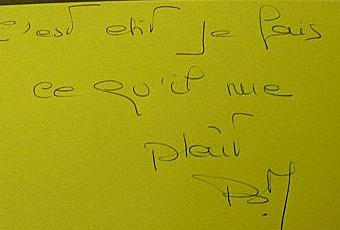 c'est et je fais
ce qu'il me
plaît